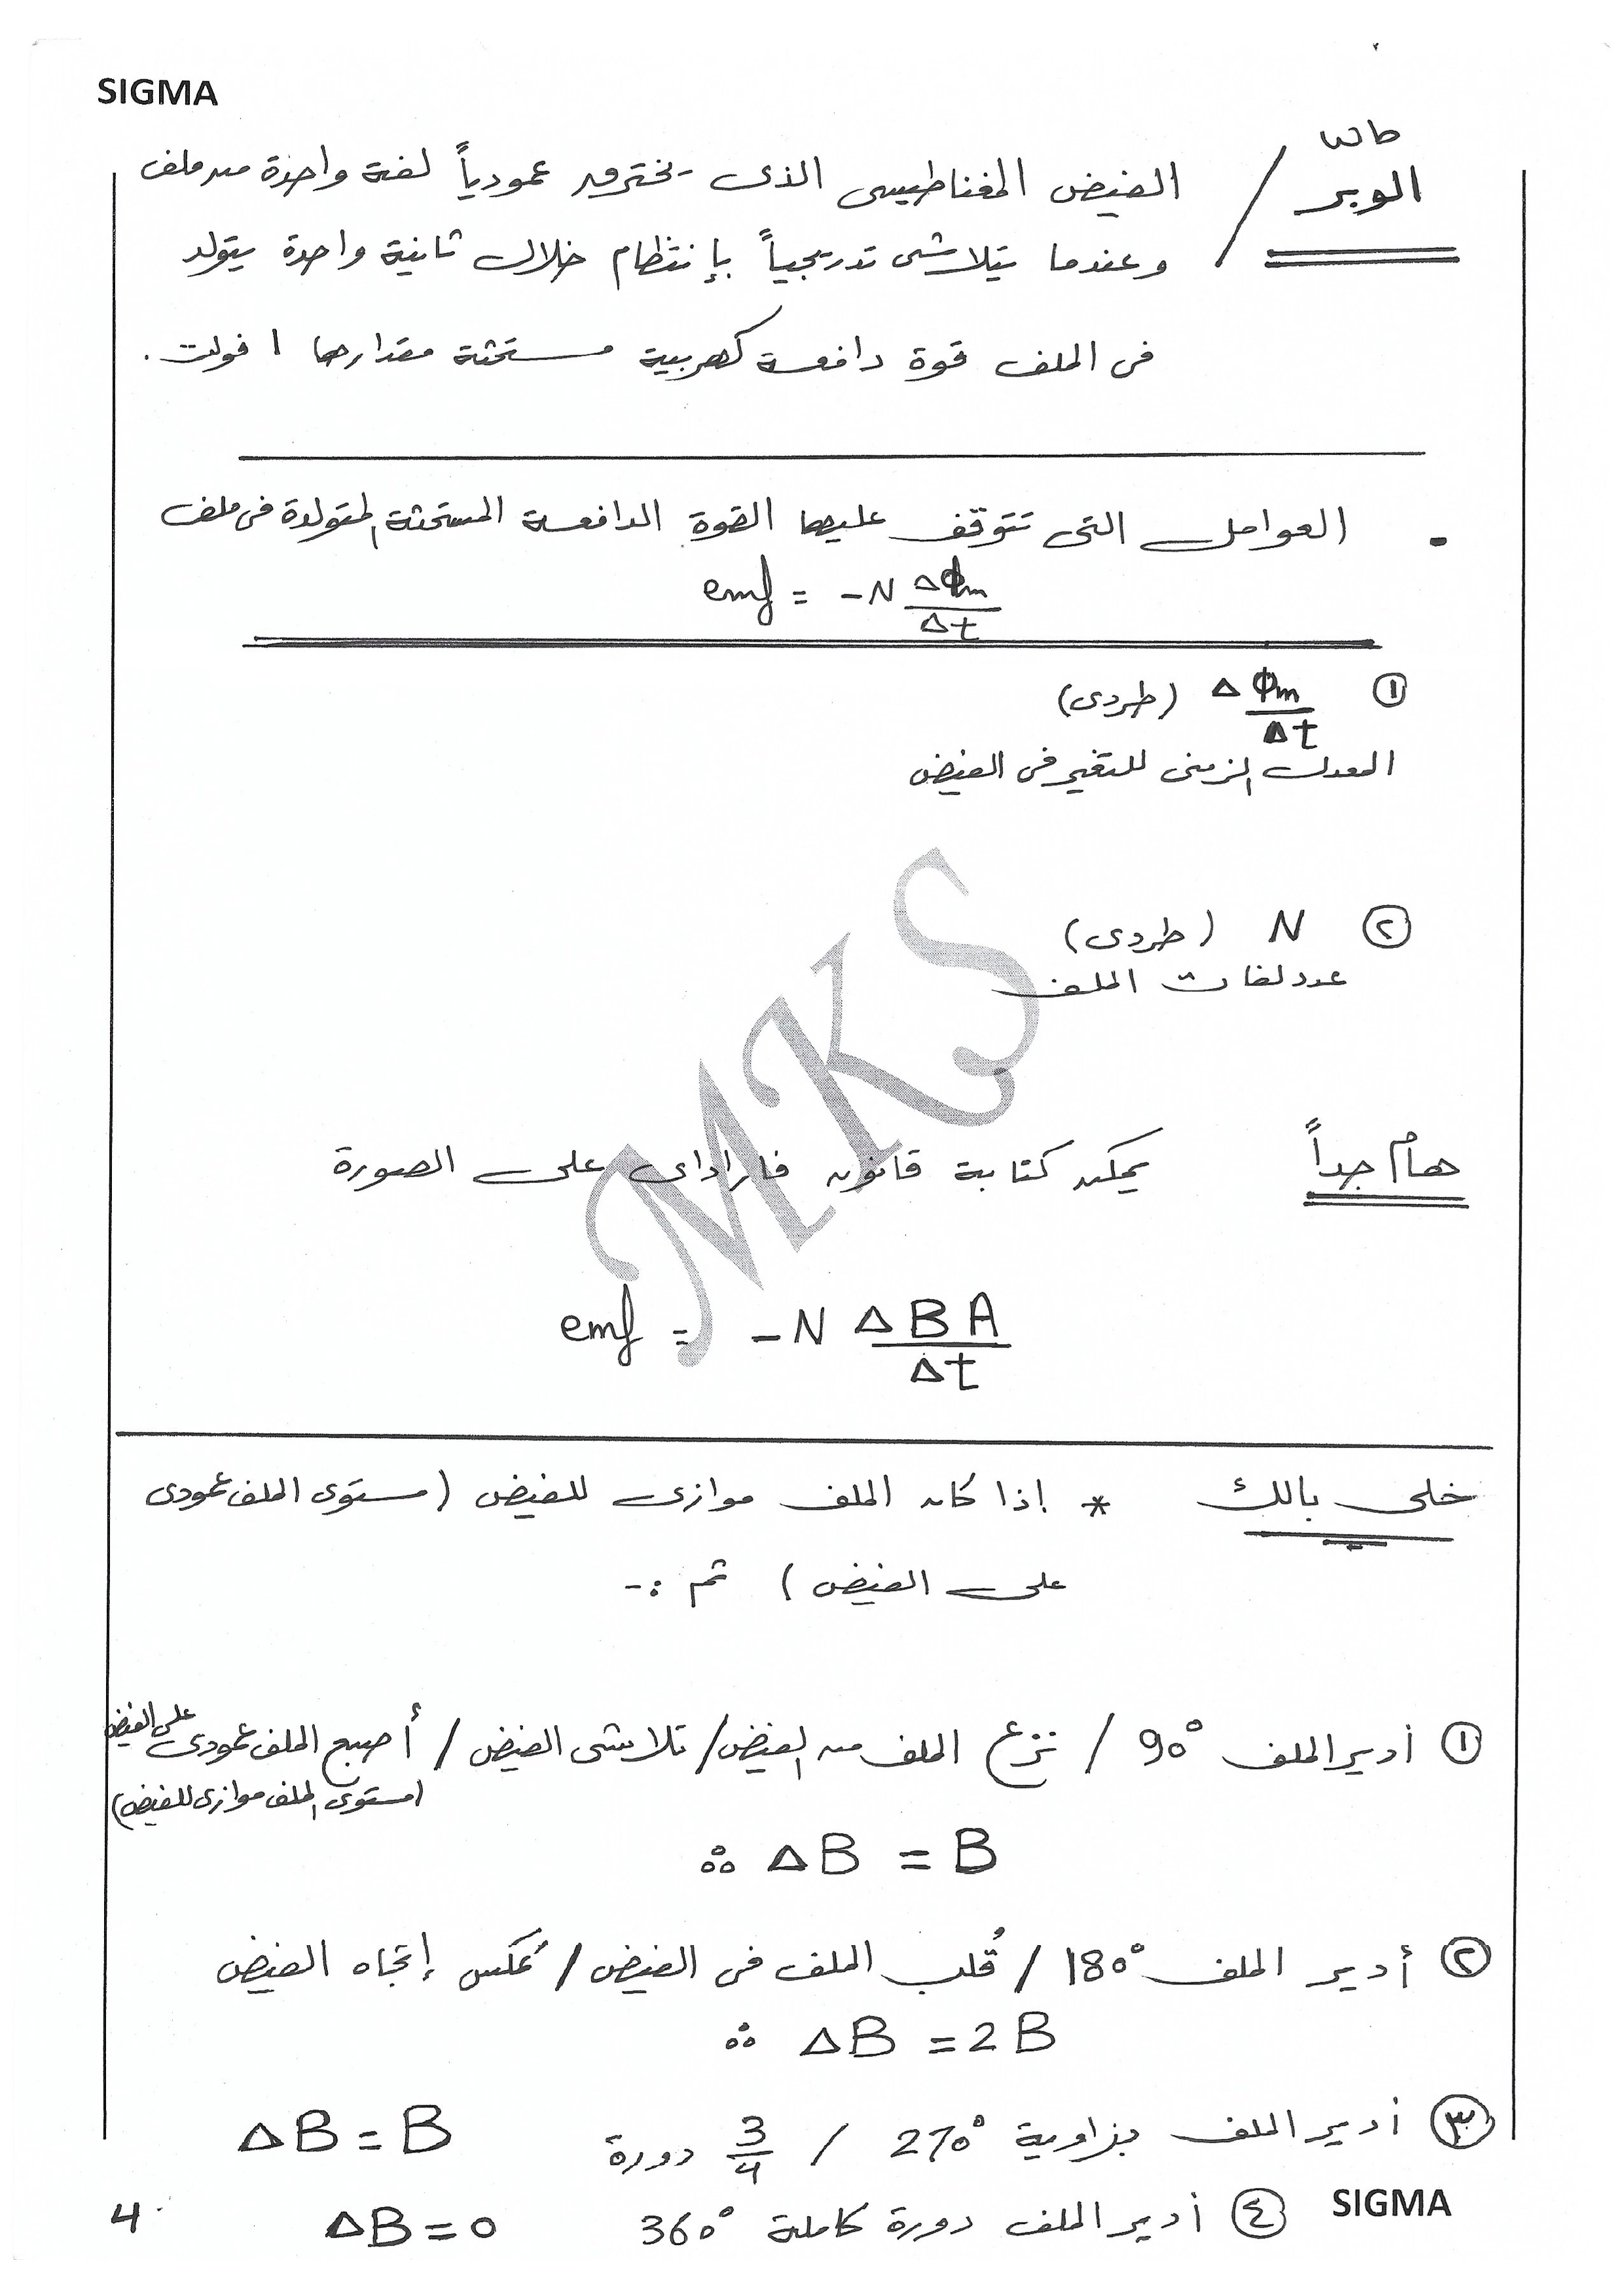 SIGMA
الوبر / الفيض المغناطيسى الذى يخترق عمودياً لفة واحدة من ملف
وعندما يتلاشى تدريجياً بإنتظام خلال ثانية واحدة يتولد
فى الملف قوة دافعة كهربية مستحثة مقدارها ١ فولت .
• العوامل التى تتوقف عليها القوة الدافعة المستحثة المتولدة فى ملف
emf = -N ΔΦm/Δt
① ΔΦm/Δt (طردى)
المعدل الزمنى للتغير فى الفيض
② N (طردى)
عدد لفات الملف
MKS
هام جداً يمكن كتابة قانون فاراداى على الصورة
emf = -N ΔBA/Δt
خلى بالك * إذا كان الملف موازى للفيض (مستوى الملف عمودى
على الفيض) ثم :-
① أدير الملف 90° / نزع الملف من الفيض / تلاشى الفيض / أصبح الملف عمودى على الفيض
(مستوى الملف موازى للفيض)
∴ ΔB = B
② أدير الملف 180° / قُلب الملف فى الفيض / عُكس إتجاه الفيض
∴ ΔB = 2B
③ أدير الملف بزاوية 270° / 3/4 دورة ΔB = B
④ أدير الملف دورة كاملة 360° ΔB = 0
SIGMA
4